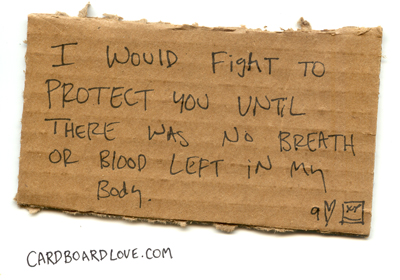 I WOULD FighT TO
PROTECT YOU UNTIL
THERE WAS NO BREATH
OR BlOOD LEFT iN My
BoDy.
9
CARDBOARDLOVE.COM